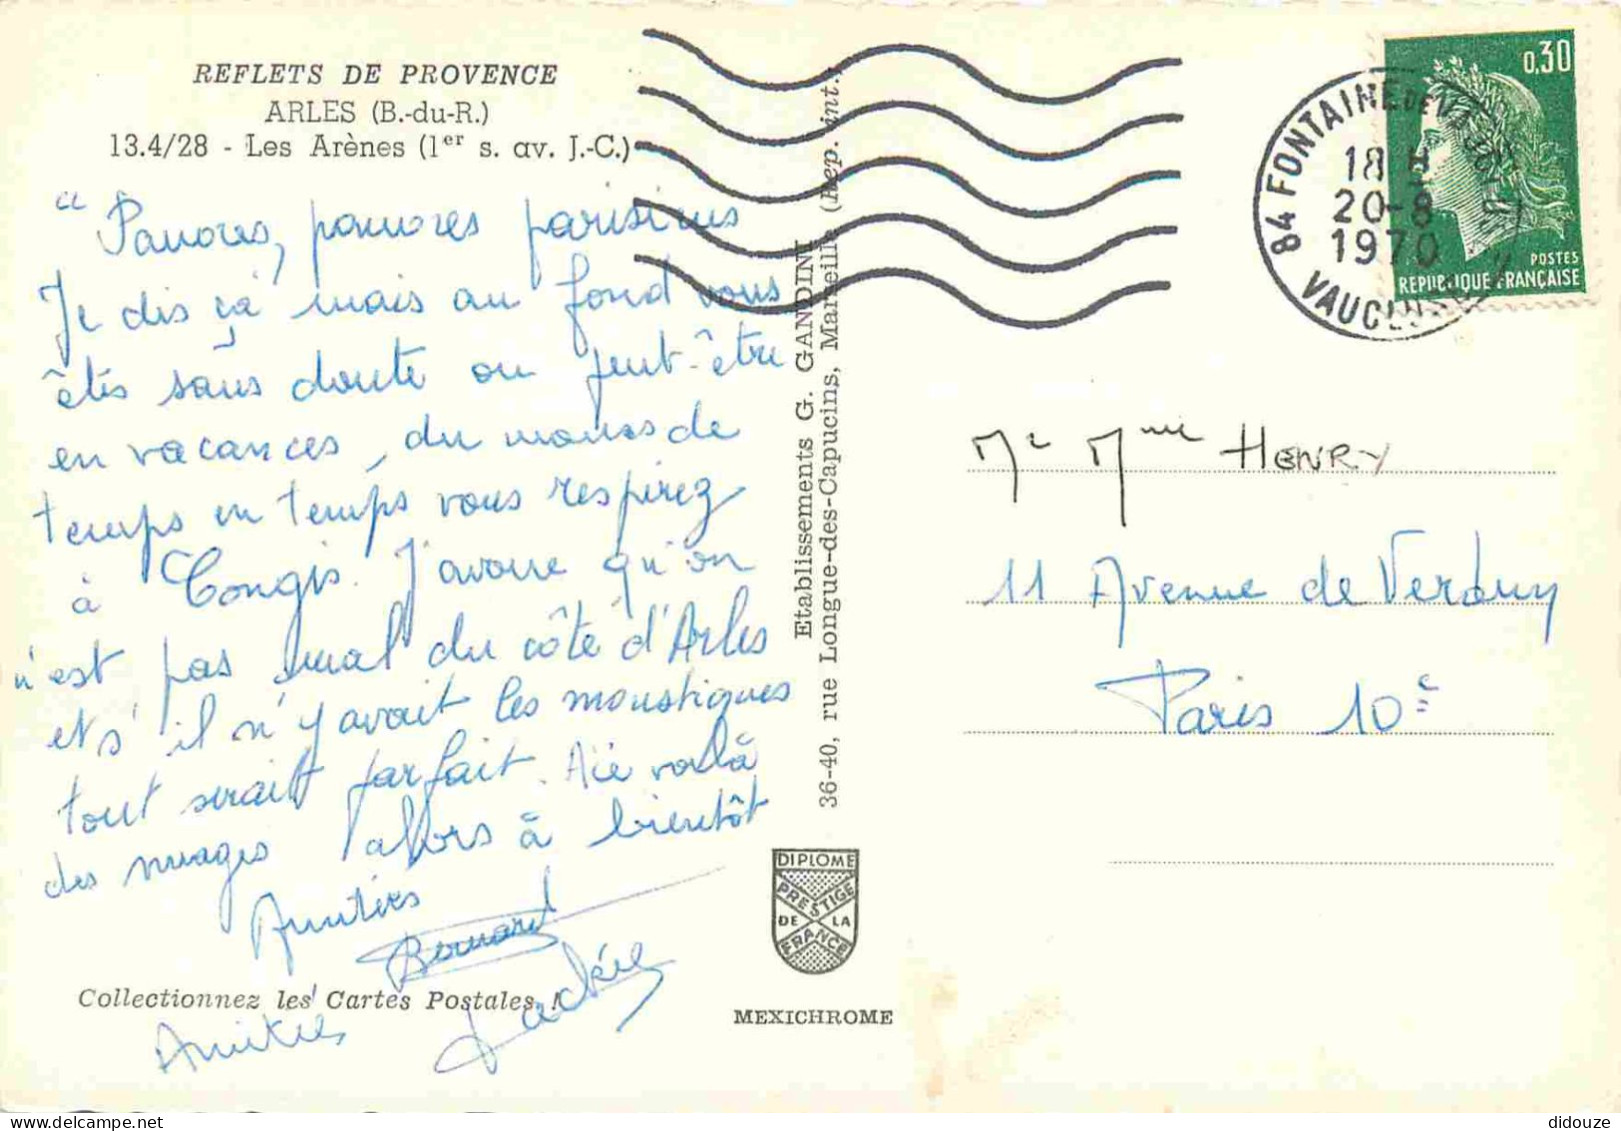 REFLETS DE PROVENCE
ARLES (B.-du-R.)
13.4/28 - Les Arènes (1er s. av. J.-C.)
" Pauvres, pauvres parisiens
Je dis ça mais au fond vous
êtes sans doute ou peut-être
en vacances, du moins de
temps en temps vous respirez
à Congis. J'avoue qu'on
n'est pas mal du côté d'Arles
et s'il n'y avait les moustiques
tout serait parfait. Aïe voilà
des nuages alors à bientôt
Amitiés
Bernard
Collectionnez les Cartes Postales !
Amitiés
Etablissements G. GANDINI
36-40, rue Longue-des-Capucins, Marseille (Rep. int.)
DIPLOME
PRESTIGE
DE LA
FRANCE
MEXICHROME
0,30
POSTES
REPUBLIQUE FRANÇAISE
84 FONTAINE DE VAUCLUSE
18 H
20-8
1970
VAUCLUSE
Mr Mme HENRY
11 Avenue de Verdun
Paris 10e
didouze